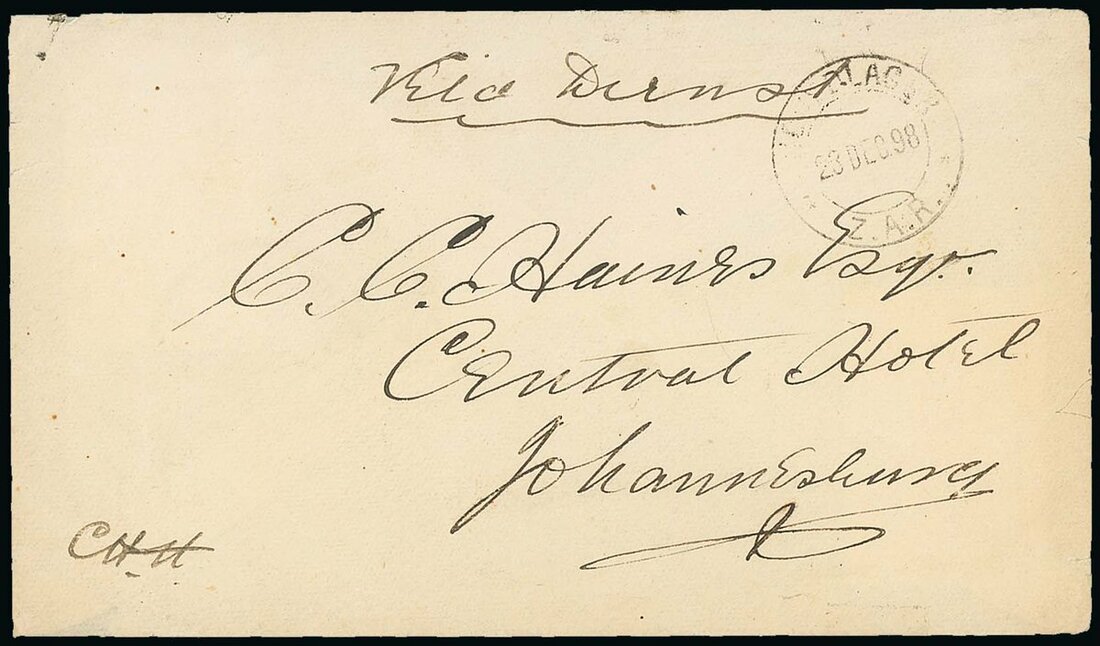 Veld Dienst
23 DEC. 98
Z.A.R.
C. C. Haines Esqr.
Central Hotel
Johannesburg
CHH